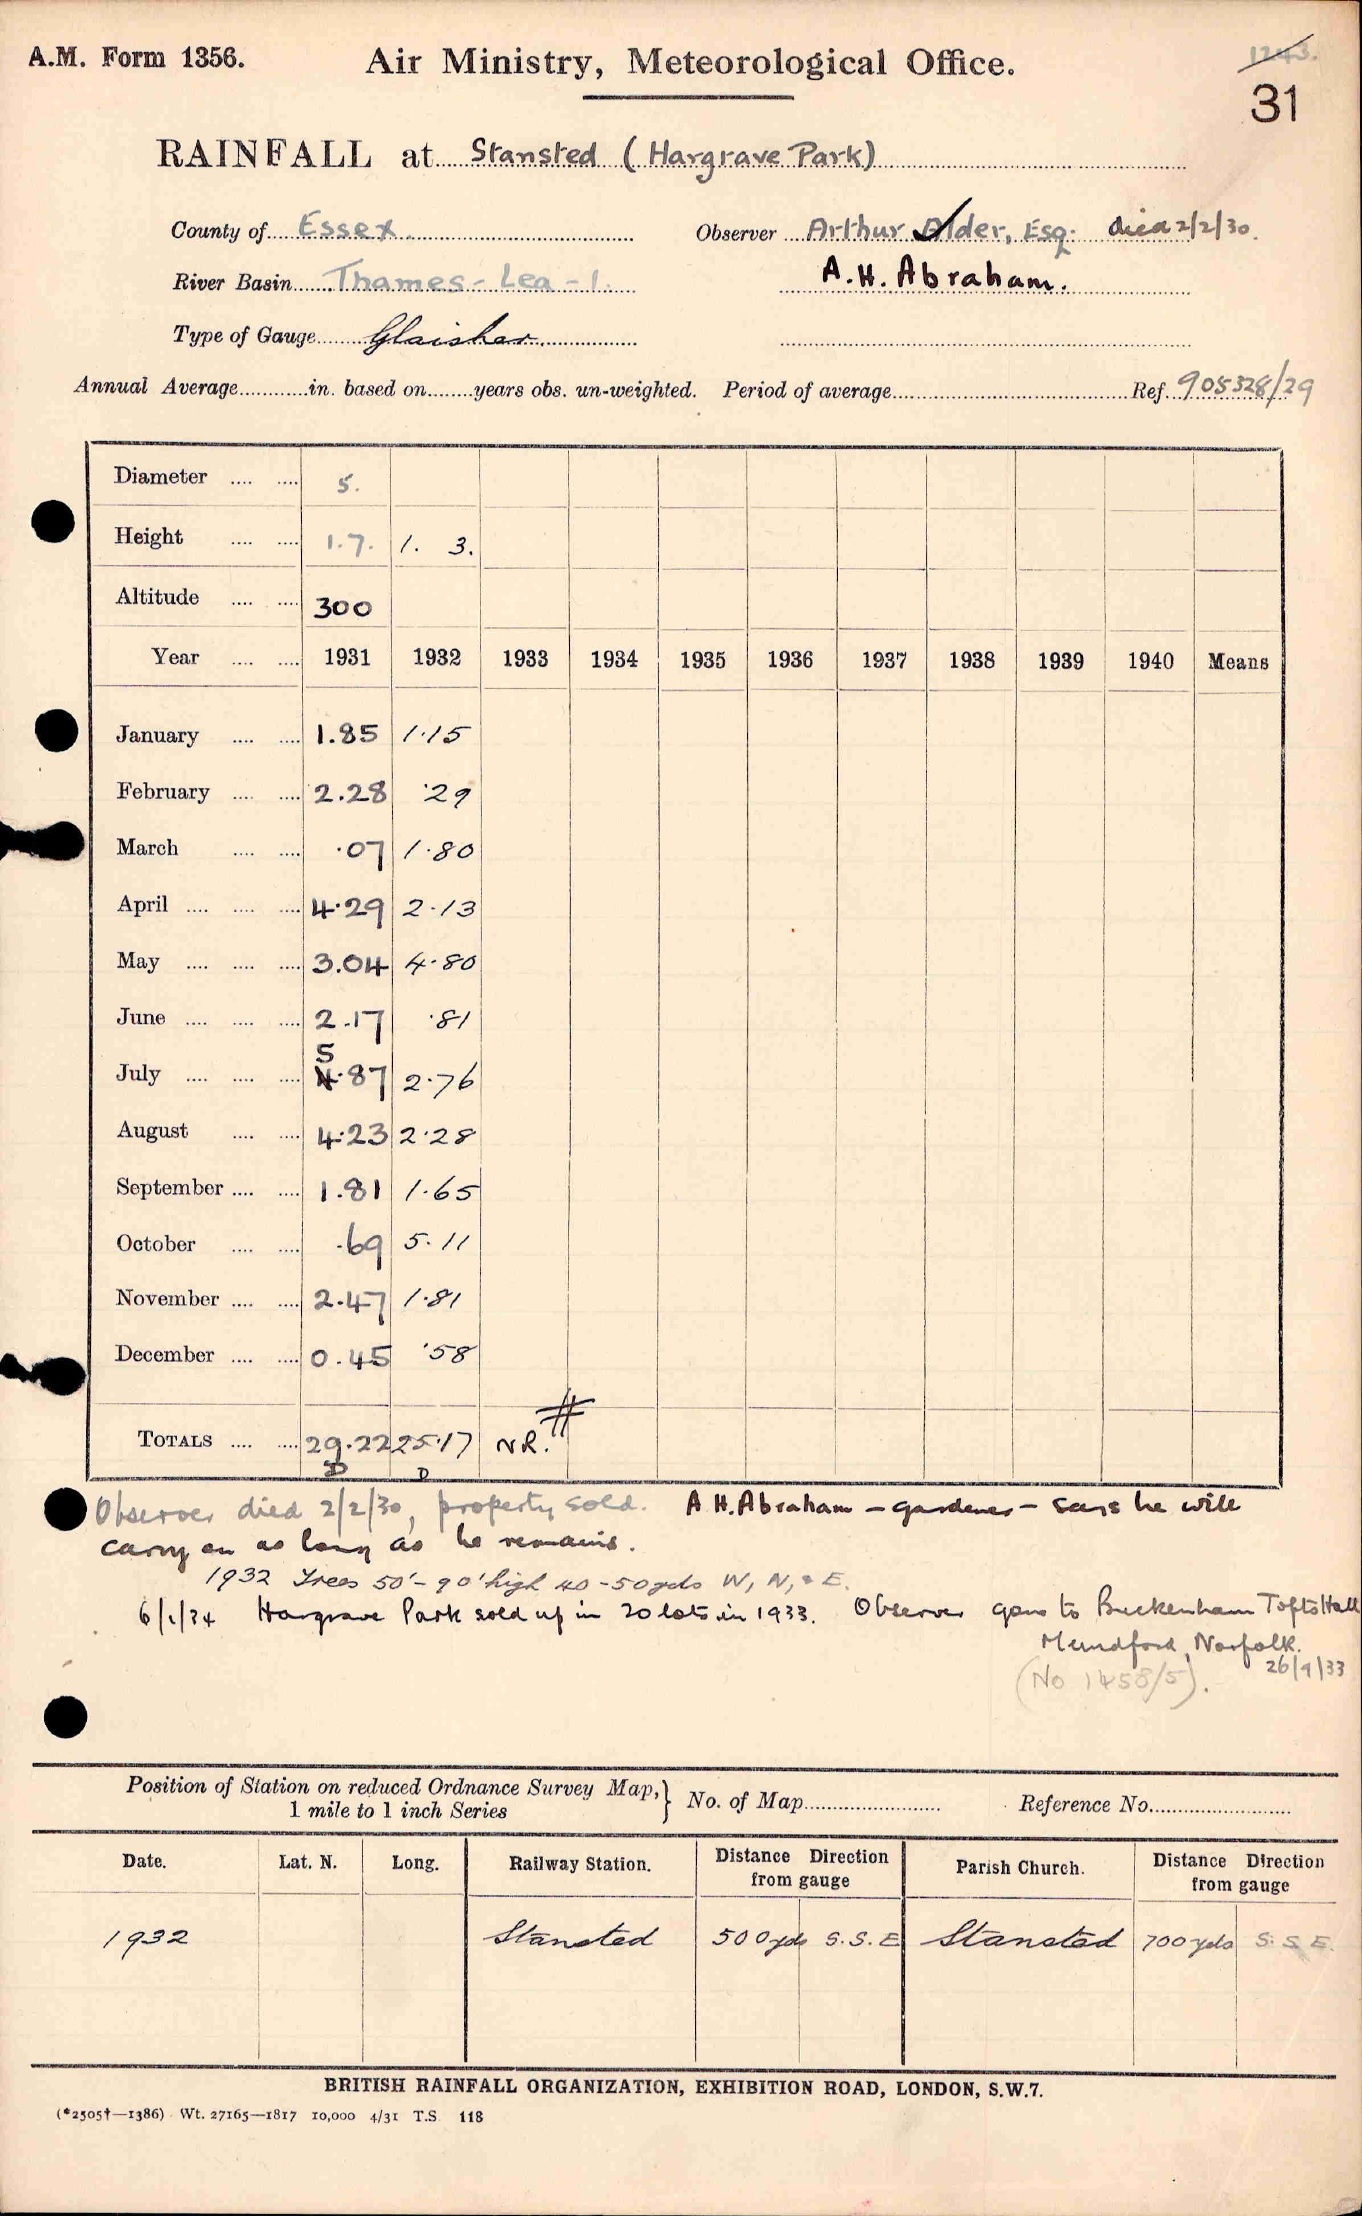 A.M. Form 1356.
Air Ministry, Meteorological Office.
1243.
31
RAINFALL at Stansted (Hargrave Park)
County of Essex. Observer Arthur Alder, Esq. died 2/2/30.
River Basin Thames - Lea - 1. A.H. Abraham.
Type of Gauge Glaisher
Annual Average in. based on years obs. un-weighted. Period of average Ref. 905328/29
Diameter 5.
Height 1.7. 1. 3.
Altitude 300
Year 1931 1932 1933 1934 1935 1936 1937 1938 1939 1940 Means
January 1.85 1.15
February 2.28 .29
March .07 1.80
April 4.29 2.13
May 3.04 4.80
June 2.17 .81
5
July 4.87 2.76
August 4.23 2.28
September 1.81 1.65
October .69 5.11
November 2.47 1.81
December 0.45 .58
TOTALS 29.22 25.17 N.R. #
D D
Observer died 2/2/30, property sold. A H. Abraham - gardener - says he will
carry on as long as he remains.
1932 Trees 50'-90' high 40-50yds W, N, & E.
6/1/34 Hargrave Park sold up in 20 lots in 1933. Observer gone to Buckenham Tofts Hall
Mundford, Norfolk.
26/9/33
(No 1458/5).
Position of Station on reduced Ordnance Survey Map, } No. of Map Reference No.
1 mile to 1 inch Series
Date. Lat. N. Long. Railway Station. Distance Direction from gauge Parish Church. Distance Direction from gauge
1932 Stansted 500yds S.S.E Stansted 700yds S.S.E.
BRITISH RAINFALL ORGANIZATION, EXHIBITION ROAD, LONDON, S.W.7.
(*2505†—1386) Wt. 27165—1817 10,000 4/31 T.S. 118